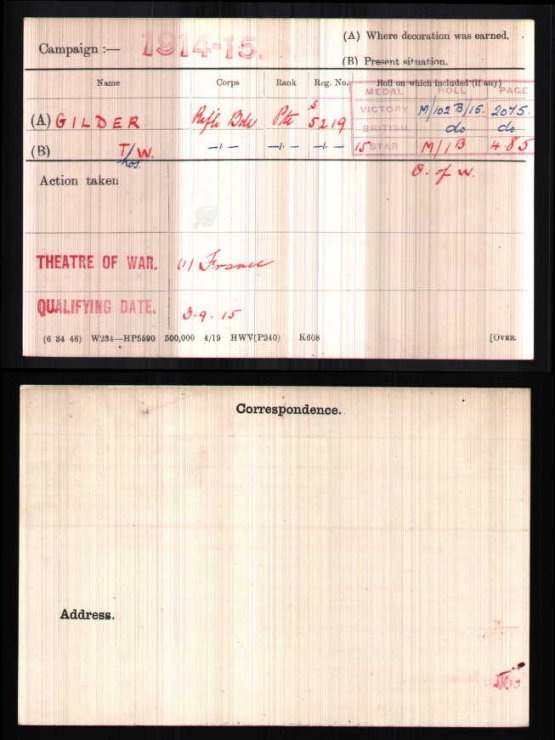 Campaign :— 1914-15.
(A) Where decoration was earned.
(B) Present situation.
Name Corps Rank Reg. No. Roll on which included (if any)
MEDAL ROLL PAGE
(A) GILDER Rifle Bde Pte S 5219 VICTORY M/102 B/15. 2075.
BRITISH do do
(B) T/W. Thos. —"— —"— —"— 15 STAR M/1 B 485
Action taken
D. of W.
THEATRE OF WAR. (1) France
QUALIFYING DATE. 3.9.15
(6 34 46) W234—HP5590 500,000 4/19 HWV(P240) K608 [OVER.
Correspondence.
Address.